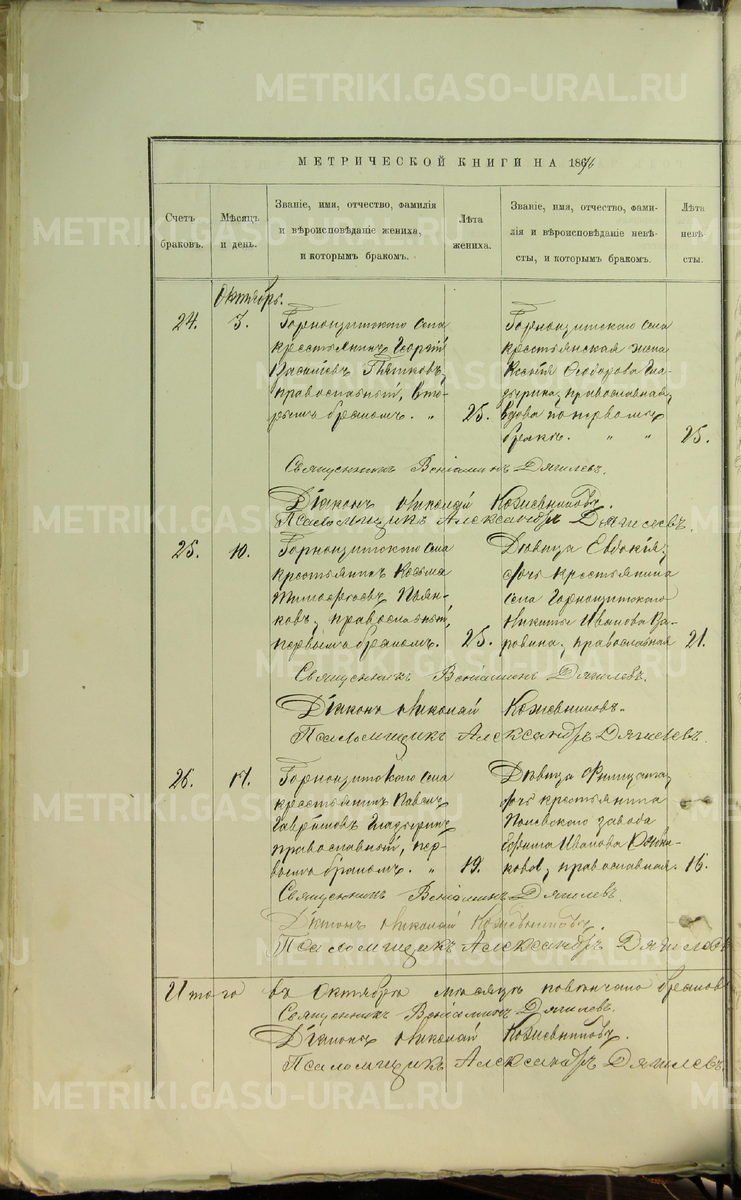 METRIKI.GASO-URAL.RU
МЕТРИЧЕСКОЙ КНИГИ НА 186
Счетъ браковъ.
Мѣсяцъ и день.
Званіе, имя, отчество, фамилія и вѣроисповѣданіе жениха, и которымъ бракомъ.
Лѣта жениха.
Званіе, имя, отчество, фамилія и вѣроисповѣданіе невѣсты, и которымъ бракомъ.
Лѣта невѣсты.
Октябрь.
24.
3.
Горнощитского села
крестьянинъ Георгій
Васильевъ Пятковъ,
православный, вто-
рымъ бракомъ. "
25.
Горнощитскаго села
крестьянская жена
Ксенія Ѳеодорова Гла-
дырина, православная,
вдова по первомъ
бракѣ. " "
25.
Священникъ Веніаминъ Дягилевъ.
Діаконъ Николай Кожевниковъ.
Псаломщикъ Александръ Дягилевъ.
25.
10.
Горнощитского села
крестьянинъ Козьма
Тимоѳеевъ Пьян-
ковъ, православный,
первымъ бракомъ.
25.
Дѣвица Евдокія,
дочь крестьянина
села Горнощитского
Никиты Иванова Ва-
ровина, православная
21.
Священникъ Веніаминъ Дягилевъ.
Діаконъ Николай Кожевниковъ.
Псаломщикъ Александръ Дягилевъ.
26.
17.
Горнощитского села
крестьянинъ Павелъ
Гавриловъ Гладыринъ
православный, пер-
вымъ бракомъ. "
19.
Дѣвица Филицата,
дочь крестьянина
Полевского завода
Иванова
православная.
16.
Священникъ Веніаминъ Дягилевъ.
Діаконъ Николай Кожевниковъ.
Псаломщикъ Александръ Дягилевъ
Итого въ Октябрѣ мѣсяцѣ повѣнчано браковъ
Священникъ Веніаминъ Дягилевъ.
Діаконъ Николай Кожевниковъ.
Псаломщикъ Александръ Дягилевъ.